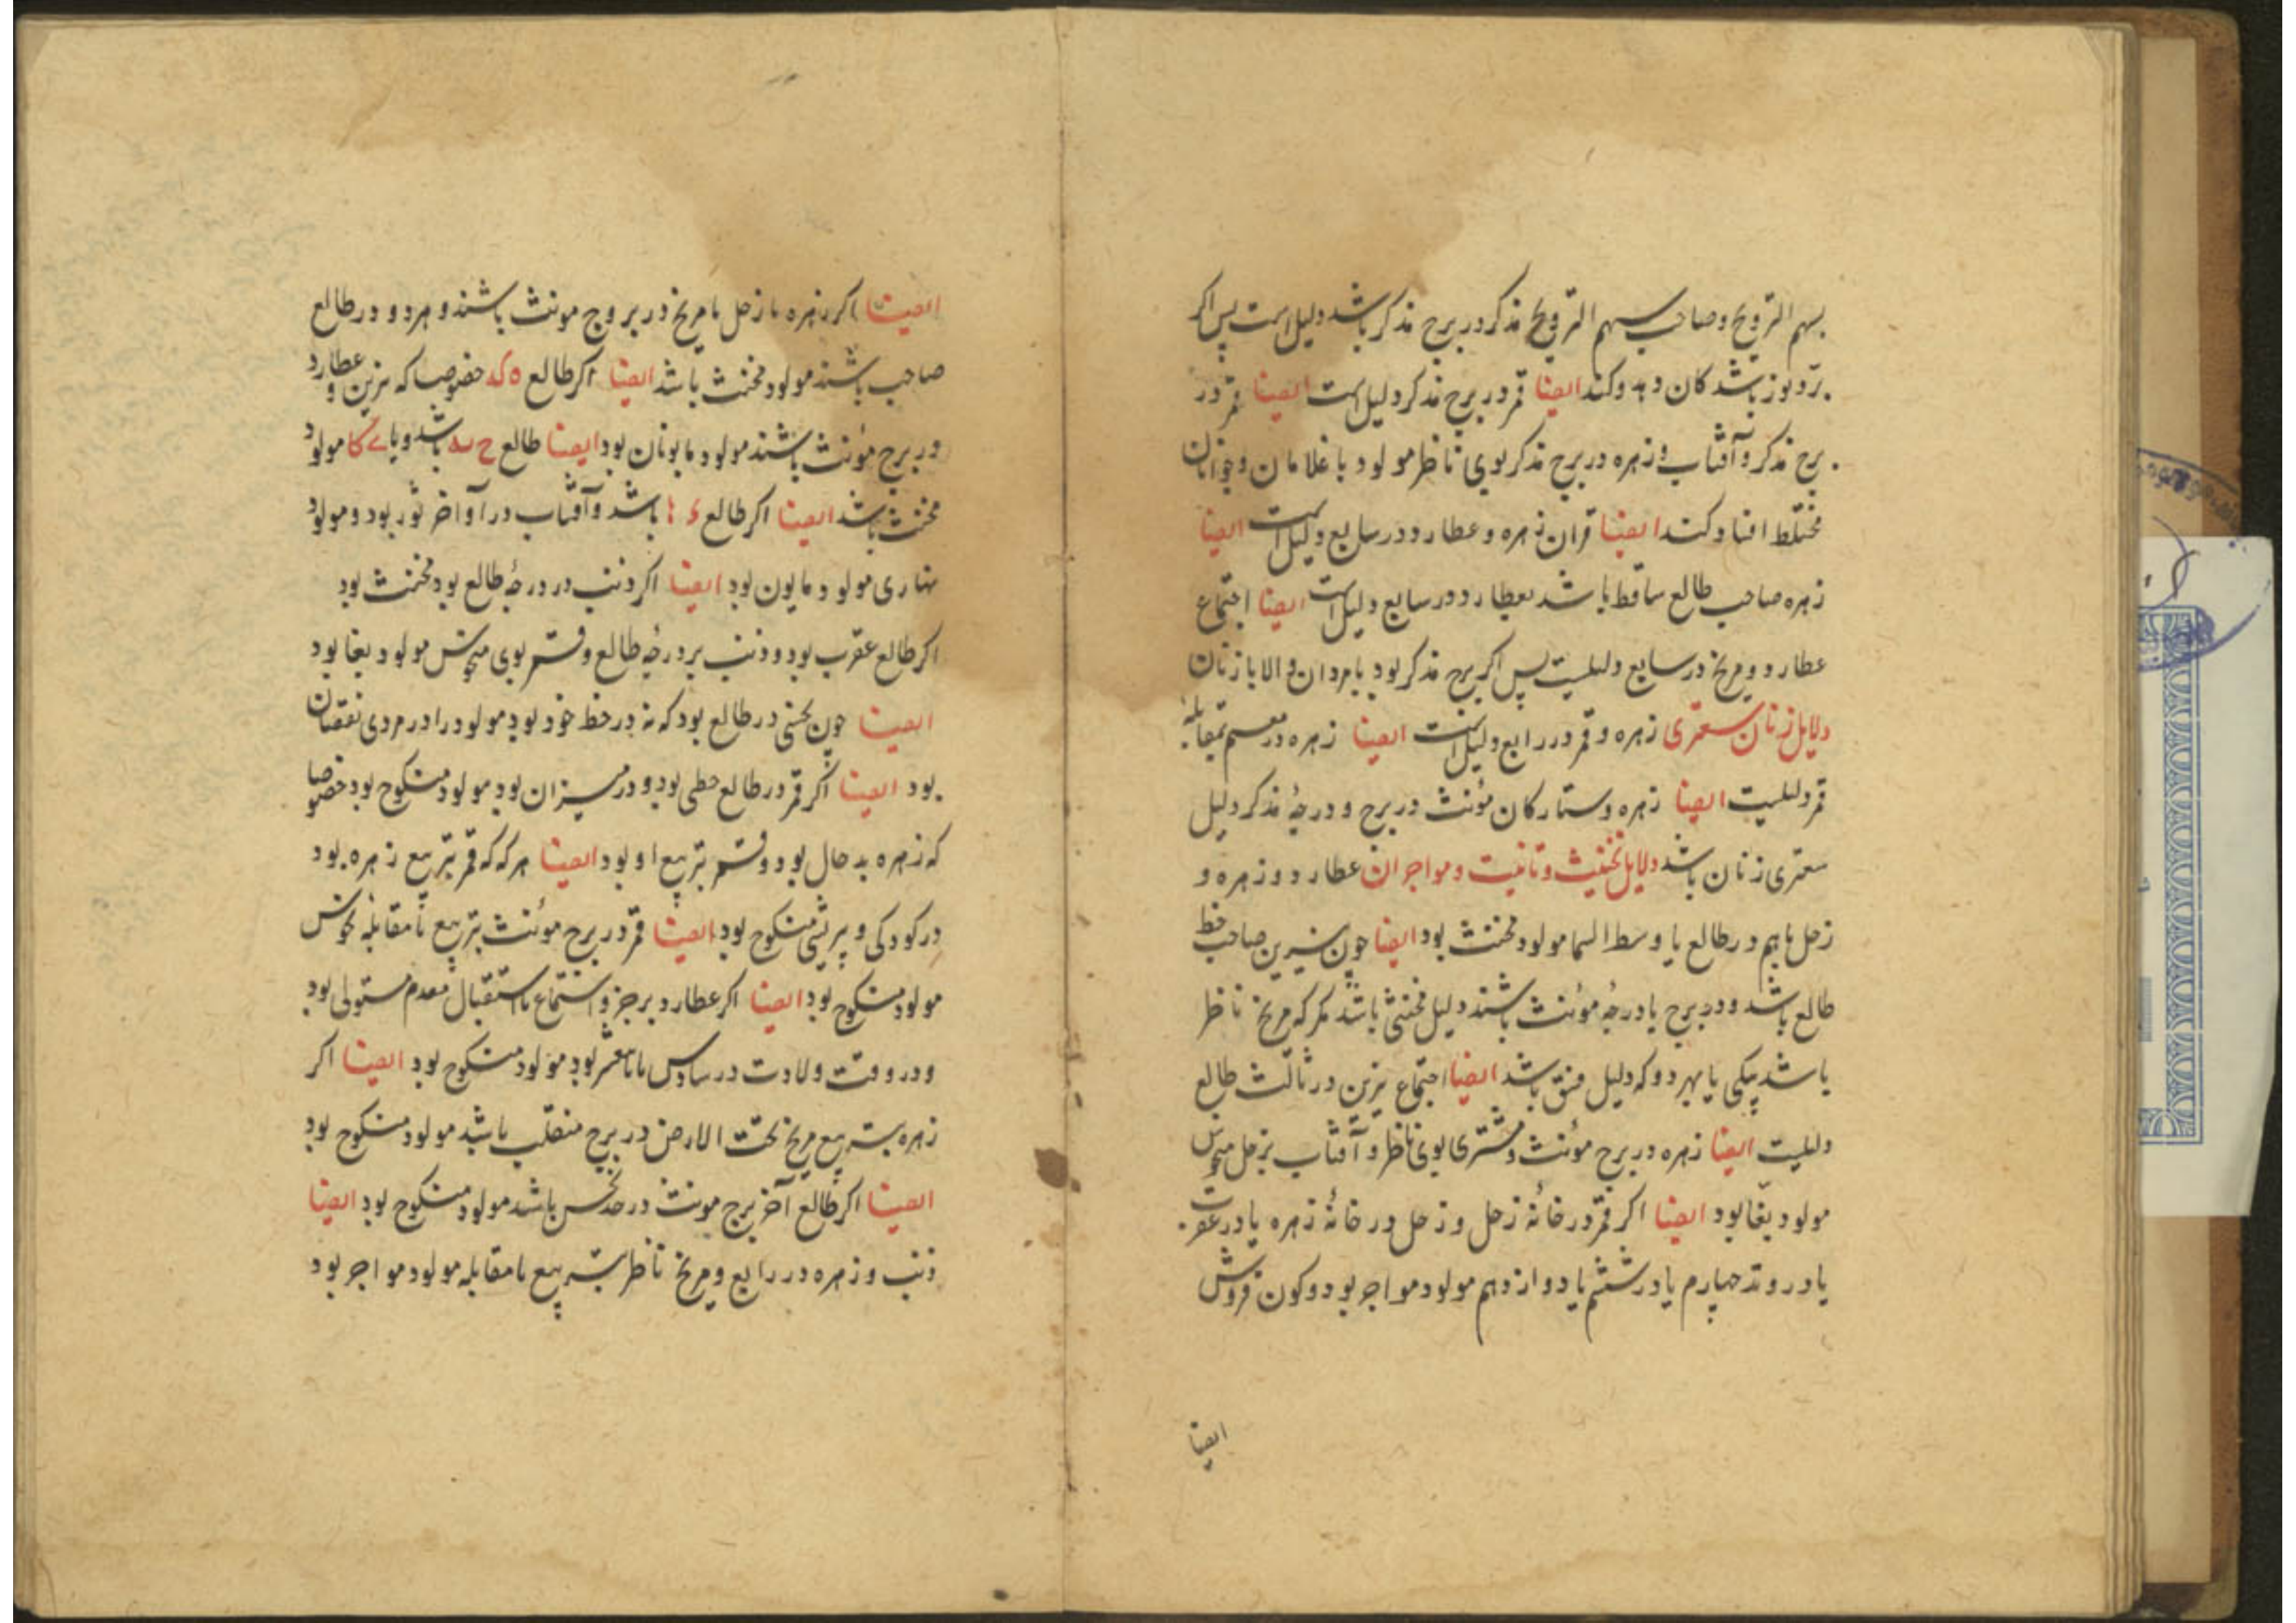 بسهم التزویج وصاحب سهم التزویج مذکر در برج مذکر باشد دلیل است پس اکر
باشد کان دهد وکند ایضا قمر در برج مذکر دلیل است ایضا قمر در
برج مذکر و آفتاب وزهره در برج مذکر بوی ناظر مولود با غلامان و جوانان
مختلط افتاد کند ایضا قران زهره و عطارد در سابع دلیل است ایضا
زهره صاحب طالع ساقط باشد بعطارد در سابع دلیل است ایضا اجتماع
عطارد و مریخ در سابع دلیلیست پس اکر برج مذکر بود با مردان و الا با زنان
دلایل زنان سعتری زهره و قمر در رابع دلیل است ایضا زهره در بمقابلهٔ
قمر دلیلیست ایضا زهره و ستارکان مؤنث در برج و درجهٔ مذکر دلیل
سعتری زنان باشد دلایل تخنیث و تانیث و مواجران عطارد و زهره و
زحل باهم در طالع یا وسط السما مولود مخنث بود ایضا چون نیرین صاحب حظ
طالع باشد و در برج یا درجهٔ مونث باشند دلیل مخنثی باشد مکر که مریخ ناظر
باشد بیکی یا بهر دو که دلیل فسق باشد ایضا اجتماع نیرین در ثالث طالع
دلیلیست ایضا زهره در برج مونث و مشتری بوی ناظر و آفتاب بزحل منحوس
مولود بغا بود ایضا اکر قمر در خانهٔ زحل و زحل در خانهٔ زهره یا در عقرب
یا در وتد چهارم یا در ششم یا دوازدهم مولود مواجر بود و کون فروش
ایضا
ایضا اکر زهره با زحل یا مریخ در بروج مونث باشند و هر دو در طالع
صاحب باشند مولود مخنث باشد ایضا اکر طالع ه که خصوصا که نیرین و عطارد
در برج مؤنث باشند مولود مابونان بود ایضا طالع ح باشد و یا کا مولود
مخنث باشد ایضا اکر طالع باشد و آفتاب در آواخر ثور بود و مولود
نهاری مولود مابون بود ایضا اکر ذنب در درجهٔ طالع بود مخنث بود
اکر طالع عقرب بود و ذنب بر درجهٔ طالع و قمر بوی منحوس مولود بغا بود
ایضا چون نحسی در طالع بود که نه در حظ خود بود مولود را در مردی نقصان
بود ایضا اکر قمر در طالع حظی بود و در میزان بود مولود منکوح بود خصوصا
که زهره بدحال بود و قمر بتربیع او بود ایضا هر که که قمر بتربیع زهره بود
در کودکی و پیری منکوح بود ایضا قمر در برج مونث بتربیع یا مقابله نحوس
مولود منکوح بود ایضا اکر عطارد بر جزو اجتماع یا استقبال مقدم مستولی بود
و در وقت ولادت در سادس یا تاسع بود مولود منکوح بود ایضا اکر
زهره بتربیع مریخ تحت الارض در برج منقلب باشد مولود منکوح بود
ایضا اکر طالع آخر برج مونث در حد نحس باشد مولود منکوح بود ایضا
ذنب و زهره در رابع و مریخ ناظر بتربیع یا مقابله مولود مواجر بود